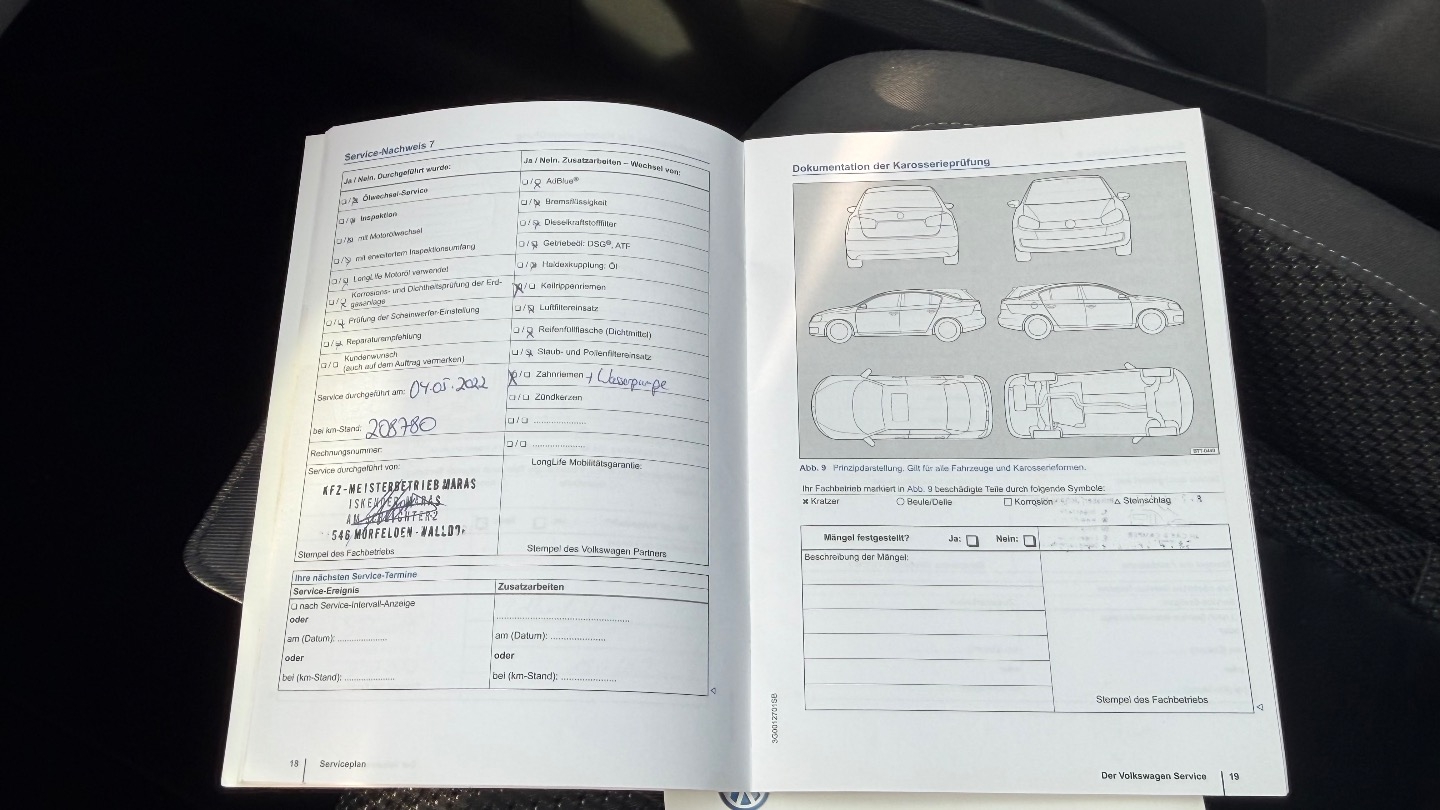 Service-Nachweis 7
Ja / Nein. Durchgeführt wurde:
❑ / ❑ Ölwechsel-Service
❑ / ❑ Inspektion
❑ / ❑ mit Motorölwechsel
❑ / ❑ mit erweitertem Inspektionsumfang
❑ / ❑ LongLife Motoröl verwendet
❑ / ❑ Korrosions- und Dichtheitsprüfung der Erd-
gasanlage
❑ / ❑ Prüfung der Scheinwerfer-Einstellung
❑ / ❑ Reparaturempfehlung
❑ / ❑ Kundenwunsch
(auch auf dem Auftrag vermerken)
Service durchgeführt am: 04.05.2022
bei km-Stand: 208780
Rechnungsnummer:
Service durchgeführt von:
KFZ-MEISTERBETRIEB MARAS
ISKENDER MARAS
AM
546 MÖRFELDEN-WALLDO
Stempel des Fachbetriebs
Ja / Nein. Zusatzarbeiten – Wechsel von:
❑ / ❑ AdBlue®
❑ / ❑ Bremsflüssigkeit
❑ / ❑ Dieselkraftstofffilter
❑ / ❑ Getriebeöl: DSG®, ATF
❑ / ❑ Haldexkupplung: Öl
❑ / ❑ Keilrippenriemen
❑ / ❑ Luftfiltereinsatz
❑ / ❑ Reifenfüllflasche (Dichtmittel)
❑ / ❑ Staub- und Pollenfiltereinsatz
❑ / ❑ Zahnriemen + Wasserpumpe
❑ / ❑ Zündkerzen
❑ / ❑ ....................
❑ / ❑ ....................
LongLife Mobilitätsgarantie:
Stempel des Volkswagen Partners
Ihre nächsten Service-Termine
Service-Ereignis
❑ nach Service-Intervall-Anzeige
oder
am (Datum): ...................
oder
bei (km-Stand): ...................
Zusatzarbeiten
..................................................
am (Datum): ....................
oder
bei (km-Stand): ....................
18 Serviceplan
Dokumentation der Karosserieprüfung
Abb. 9 Prinzipdarstellung. Gilt für alle Fahrzeuge und Karosserieformen.
Ihr Fachbetrieb markiert in Abb. 9 beschädigte Teile durch folgende Symbole:
✖ Kratzer ○ Beule/Delle □ Korrosion △ Steinschlag
Mängel festgestellt? Ja: ❑ Nein: ❑
Beschreibung der Mängel:
Stempel des Fachbetriebs
3G0012701SB
Der Volkswagen Service 19